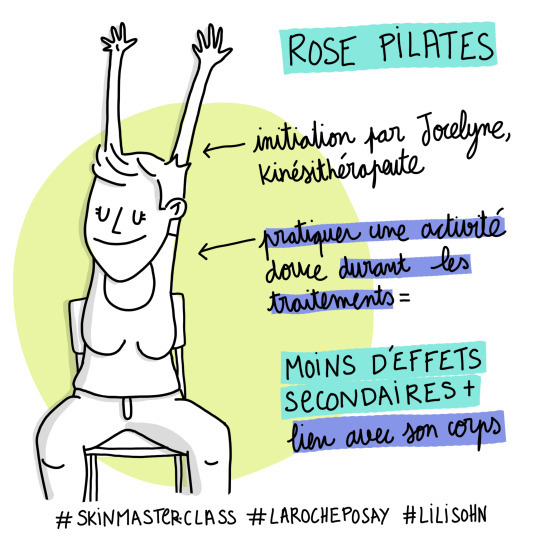 ROSE PILATES
initiation par Jocelyne,
kinésithérapeute
pratiquer une activité
douce durant les
traitements =
MOINS D'EFFETS
SECONDAIRES +
lien avec son corps
#SKINMASTERCLASS #LAROCHEPOSAY #LILISOHN